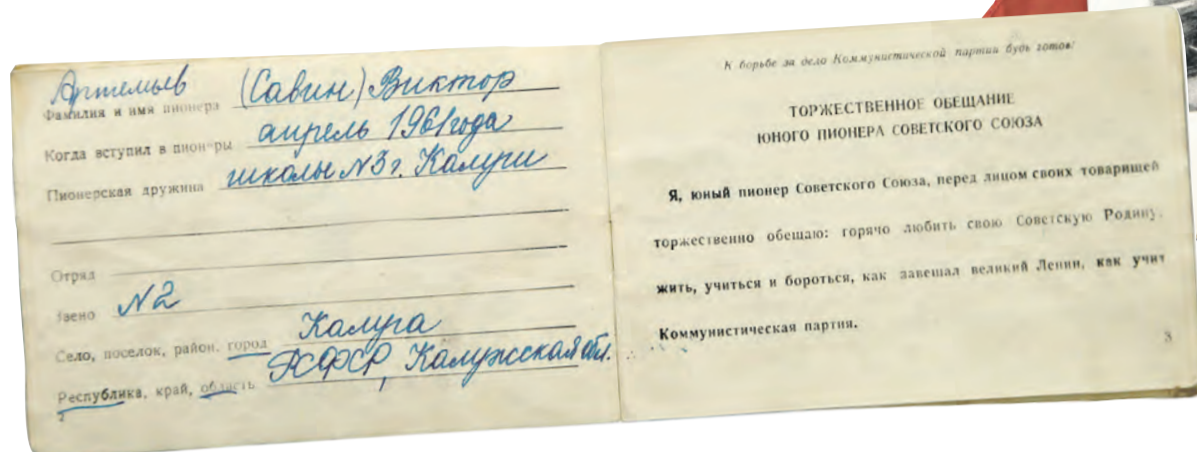 Артемьев (Савин) Виктор
Фамилия и имя пионера
Когда вступил в пионеры апрель 1961 года
Пионерская дружина школы №3 г. Калуги
Отряд
Звено №2
Село, поселок, район, город Калуга
Республика, край, область РСФСР, Калужская обл.
2
К борьбе за дело Коммунистической партии будь готов!
ТОРЖЕСТВЕННОЕ ОБЕЩАНИЕ
ЮНОГО ПИОНЕРА СОВЕТСКОГО СОЮЗА
Я, юный пионер Советского Союза, перед лицом своих товарищей
торжественно обещаю: горячо любить свою Советскую Родину,
жить, учиться и бороться, как завещал великий Ленин, как учит
Коммунистическая партия.
3